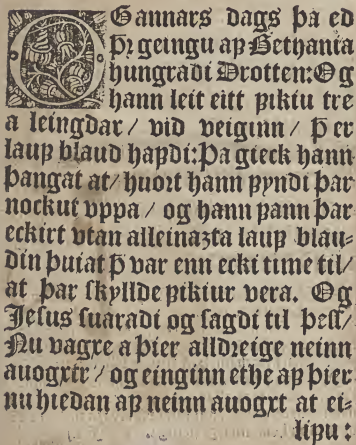 OG annars dags þa ed
þr̄ geingu aꝼ Bethania
hungradi Drotten: Og
hann leit eitt ꝼikiu tre
a leingdar / vid veiginn / þ̄ er
lauꝼ blaud haꝼdi: Þa gieck hann
þangat at / huort hann ꝼyndi þar
nockut vppa / og hann ꝼann þar
eckirt vtan alleinaꝛta lauꝼ blau-
din þuiat þ̄ var enn ecki time til /
at þar ſkyllde ꝼikiur vera. Og
Jeſus ſuaradi og ſagdi til þeſſ /
Nu vagxe a þier alldꝛeige neinn
auogxtr / og einginn ethe aꝼ þier
nu hiedan aꝼ neinn auogxt at ei-
lipu: